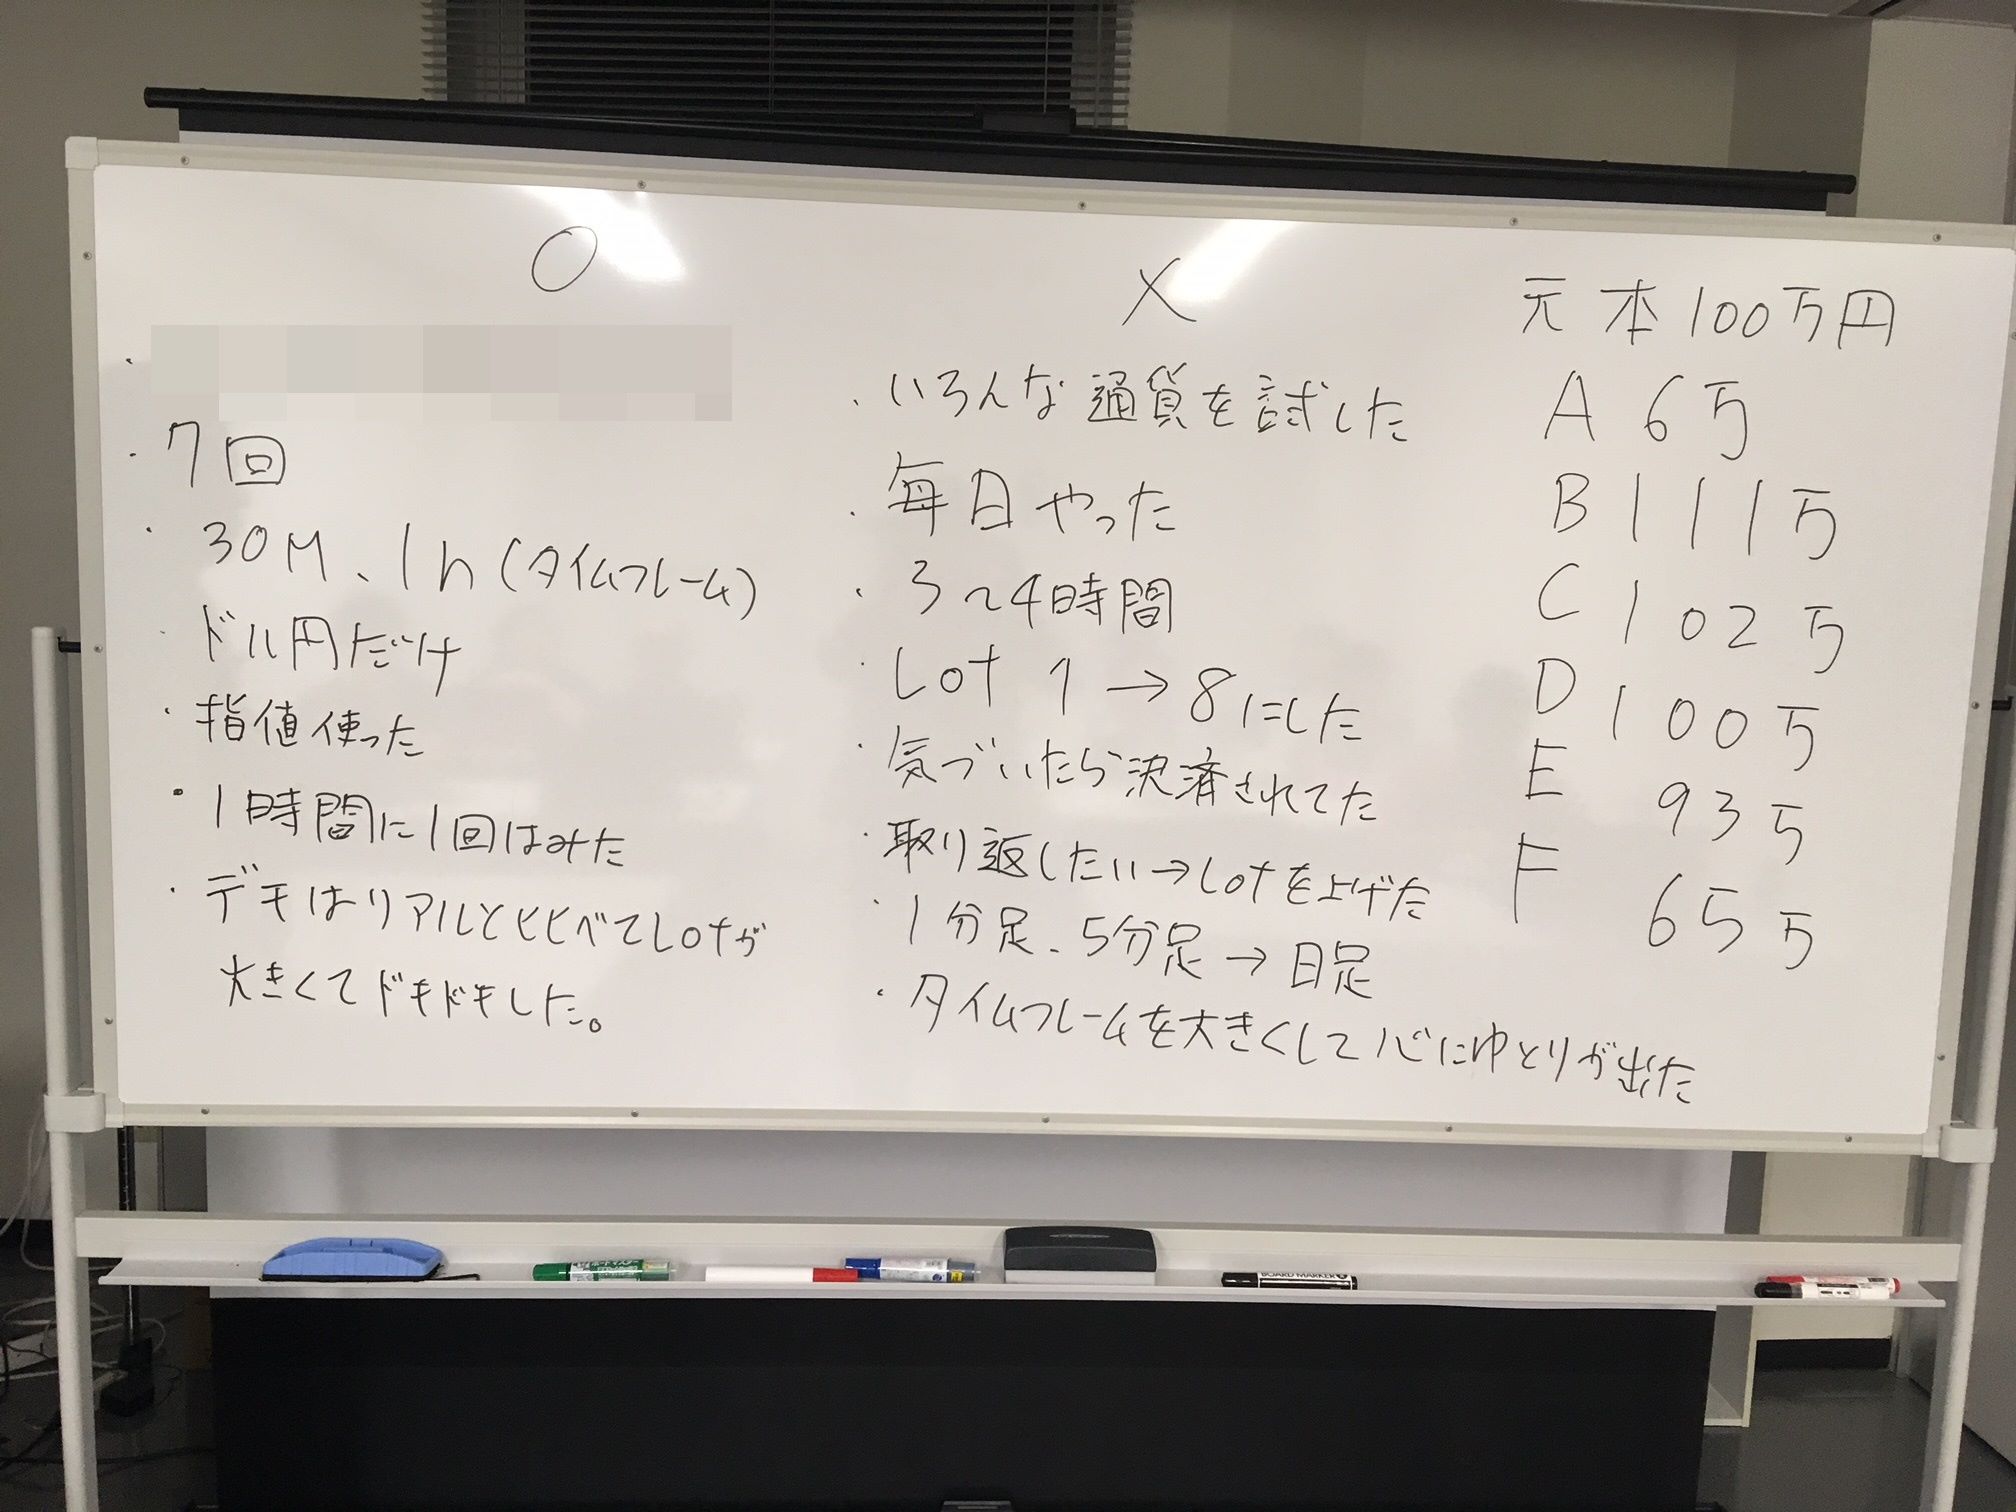 ○
・
・7回
・30M、1h(タイムフレーム)
・ドル円だけ
・指値使った
・1時間に1回はみた
・デモはリアルとヒヒべてLotが
大きくてドキドキした。
×
・いろんな通貨を試した
・毎日やった
・3~4時間
・Lot 1→8にした
・気づいたら決済されてた
・取り返したい→Lotを上げた
・1分足、5分足→日足
・タイムフレームを大きくして心にゆとりが出た
元本100万円
A 6万
B 111万
C 102万
D 100万
E 93万
F 65万
BOARD MARKER